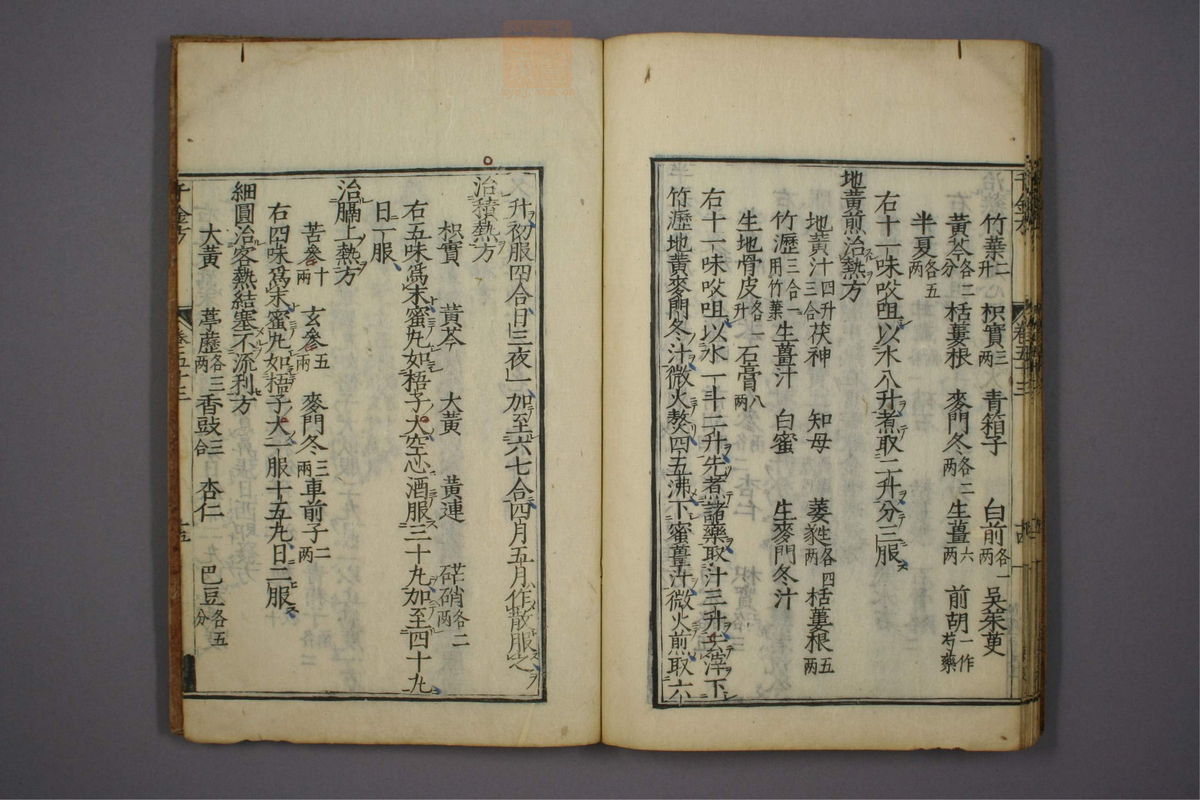 竹葉二升 枳實三兩 青箱子 白前各一兩 吳茱萸
黃芩各二分 栝蔞根 麥門冬各二兩 生薑六兩 前胡一作芍藥
半夏各五兩
右十一味㕮咀以水八升煮取二升分三服
地黃煎治熱方
地黃汁四升三合 茯神 知母 萎蕤生各四兩 栝蔞根五兩
竹瀝三合一用竹葉 生薑汁 白蜜 生麥門冬汁
生地骨皮各一升 石膏八兩
右十一味㕮咀以水一斗二升先煮諸藥取汁三升去滓下
竹瀝地黃麥門冬汁微火熬四五沸下蜜薑汁微火煎取六
升初服四合日三夜一加至六七合四月五月作散服之
治積熱方
枳實 黃芩 大黃 黃連 硭硝各二兩
右五味爲末蜜丸如梧子大空心酒服三十丸加至四十丸
日一服
治膈上熱方
苦參十兩 玄參五兩 麥門冬三兩 車前子二兩
右四味爲末蜜丸如梧子大一服十五丸日二服
細圓治客熱結塞不流利方
大黃 葶藶各三兩 香豉三合 杏仁 巴豆各五分
千金方